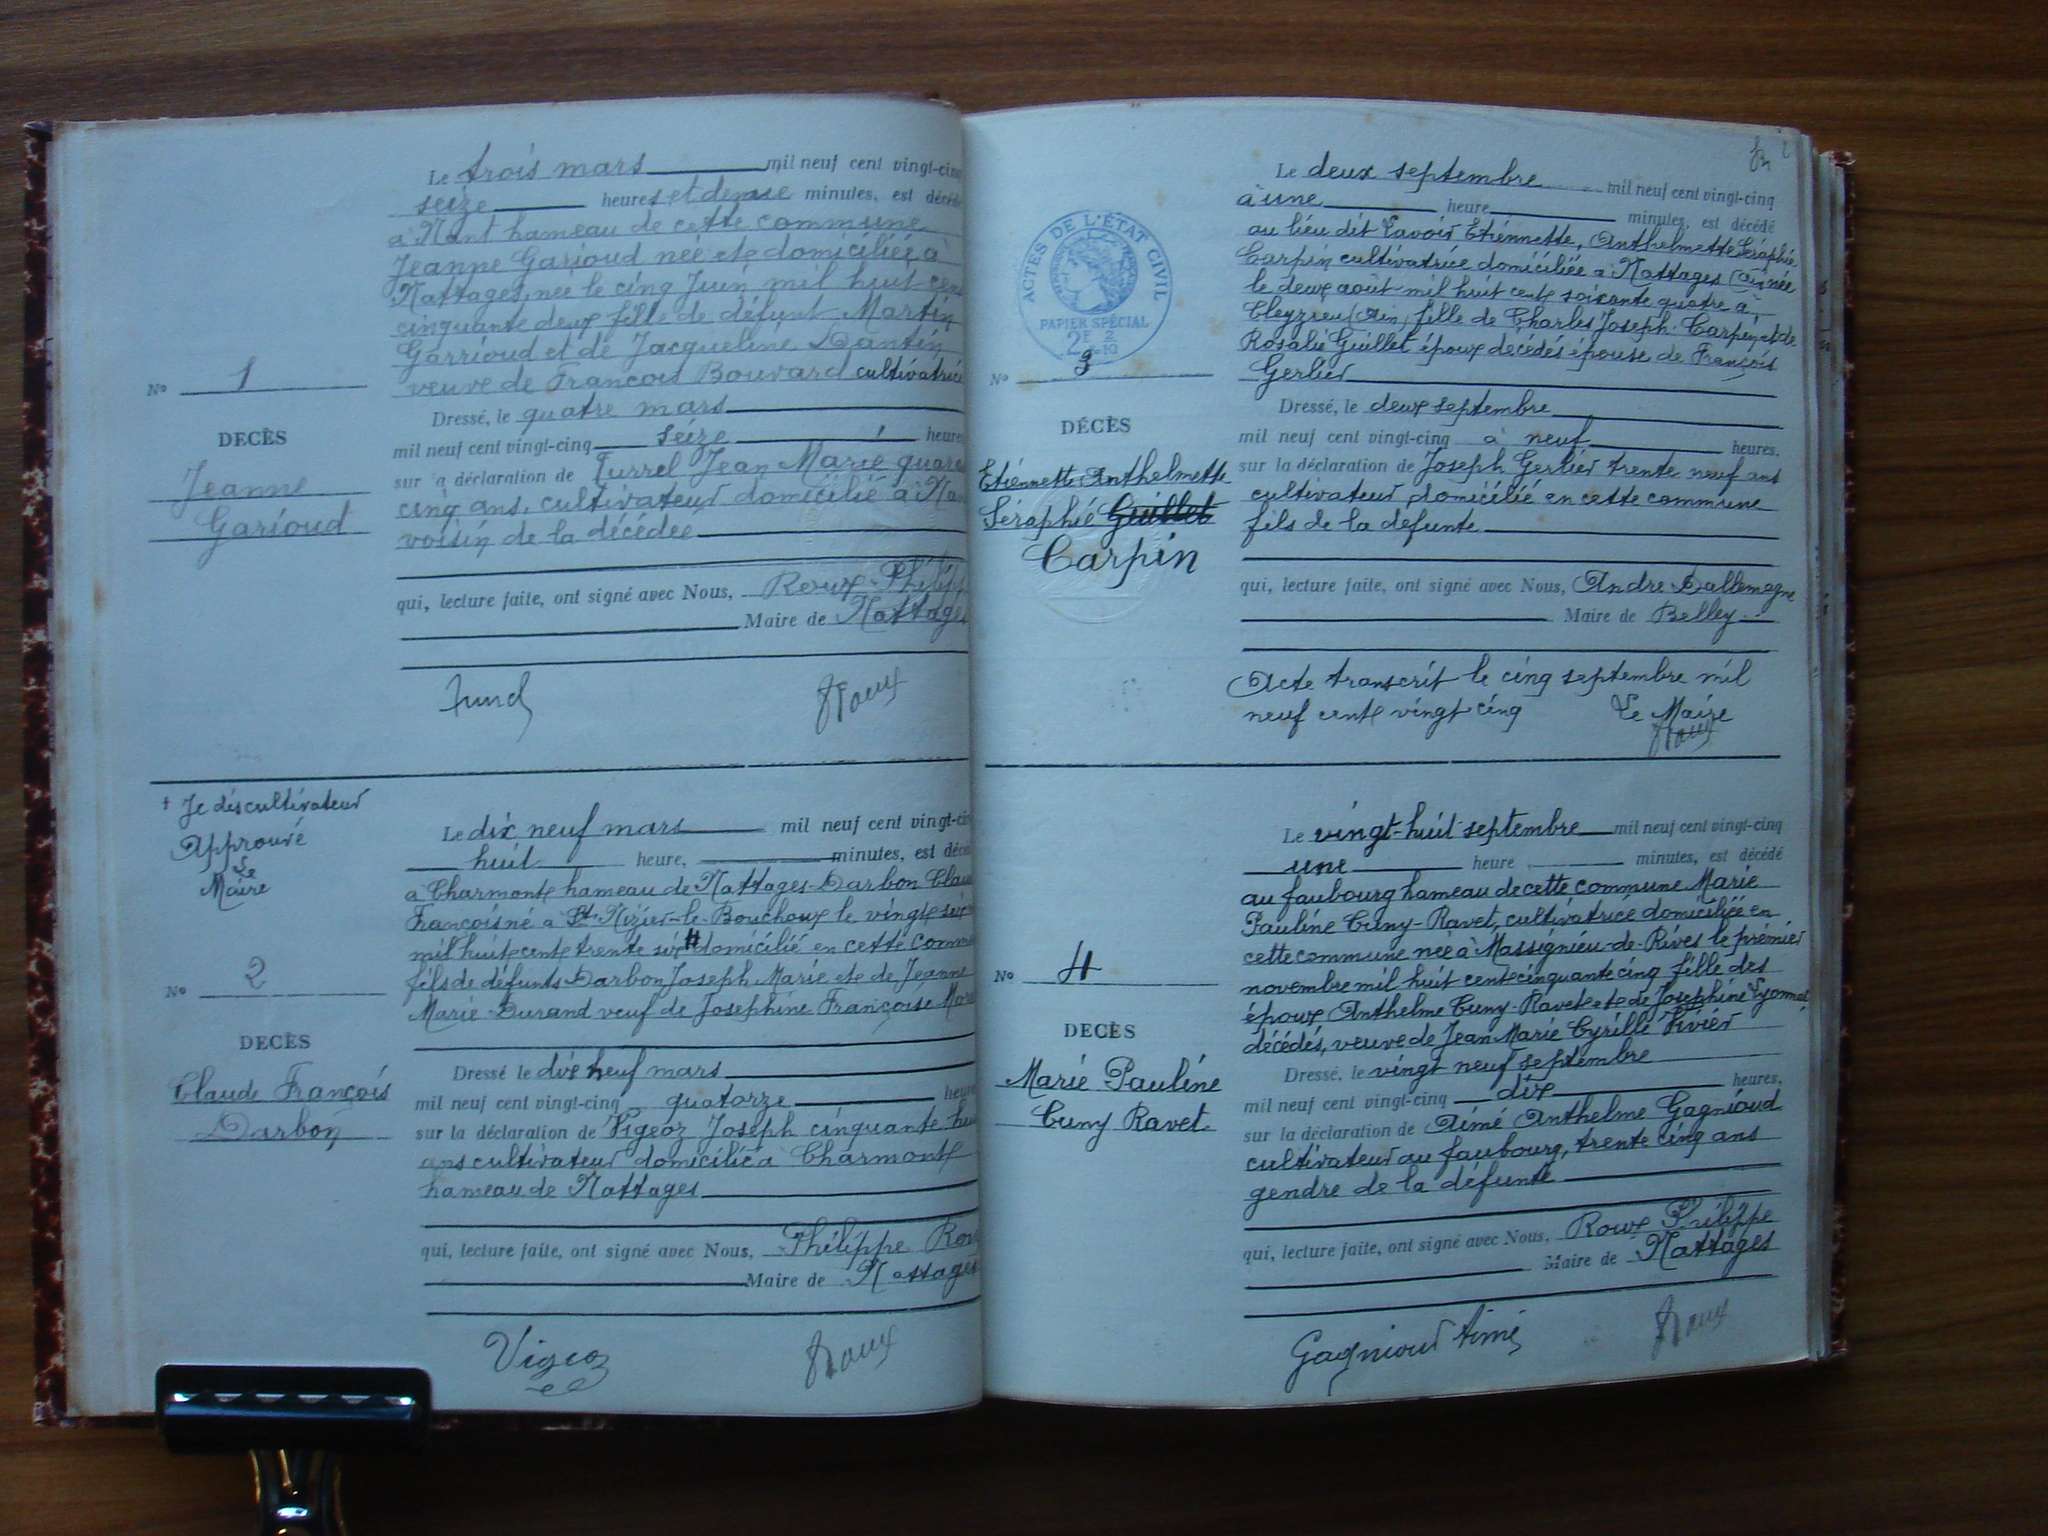 Le trois mars mil neuf cent vingt-cinq
seize heures et demie minutes, est décédé
à Nant hameau de cette commune
Jeanne Garioud née et domiciliée à
Nattages, née le cinq Juin mil huit cent
cinquante deux fille de défunt Martin
Garrioud et de Jacqueline Dantin
veuve de François Bouvard cultivatrice
Nº 1
DECÈS
Jeanne
Garioud
Dressé, le quatre mars
mil neuf cent vingt-cinq seize heures
sur la déclaration de Jean Marie
cinq ans, cultivateur domicilié à
voisin de la décédée
qui, lecture faite, ont signé avec Nous, Roux Philippe
Maire de Nattages
Roux
+ Je dis cultivateur
Approuvé
Le
Maire
Le dix neuf mars mil neuf cent vingt-cinq
huit heure, minutes, est décédé
à Charmont hameau de Nattages Darbon Claude
François né à St Nizier-le-Bouchoux le vingt six
mil huit cent trente six domicilié en cette commune
fils de défunts Darbon Joseph Marie et de Jeanne
Marie Durand veuf de Josephine Françoise
Nº 2
DECÈS
Claude François
Darbon
Dressé le dix neuf mars
mil neuf cent vingt-cinq quatorze heures
sur la déclaration de Vigeoz Joseph cinquante huit
ans cultivateur domicilié à Charmont
hameau de Nattages
qui, lecture faite, ont signé avec Nous, Philippe Roux
Maire de Nattages
Vigeoz Roux
2
ACTES DE L'ÉTAT CIVIL
PAPIER SPÉCIAL
2F 2/10
Le deux septembre mil neuf cent vingt-cinq
à une heure minutes, est décédé
au lieu dit Lavoir Etiennette, Anthelmette Séraphie
Carpin cultivatrice domiciliée à Nattages (Ain) née
le deux août mil huit cent soixante quatre à
Cleyzieu (Ain) fille de Charles Joseph Carpin et de
Rosalie Guillet époux décédés épouse de François
Gerlier
Nº 3
DÉCÈS
Etiennette Anthelmette
Séraphie Guillet
Carpin
Dressé, le deux septembre
mil neuf cent vingt-cinq à neuf heures,
sur la déclaration de Joseph Gerlier trente neuf ans
cultivateur domicilié en cette commune
fils de la défunte
qui, lecture faite, ont signé avec Nous, André Dallemagne
Maire de Belley
Acte transcrit le cinq septembre mil
neuf cent vingt cinq Le Maire
Roux
Le vingt-huit septembre mil neuf cent vingt-cinq
une heure minutes, est décédé
au faubourg hameau de cette commune Marie
Pauline Cuny-Ravet, cultivatrice domiciliée en
cette commune née à Massignieu-de-Rives le premier
novembre mil huit cent cinquante cinq fille des
époux Anthelme Cuny-Ravet et de Josephine Lyonnet
décédés, veuve de Jean Marie Cyrille Vivier
Nº 4
DECÈS
Marie Pauline
Cuny Ravet
Dressé, le vingt neuf septembre
mil neuf cent vingt-cinq dix heures,
sur la déclaration de Aimé Anthelme Gagnioud
cultivateur au faubourg, trente cinq ans
gendre de la défunte
qui, lecture faite, ont signé avec Nous, Roux Philippe
Maire de Nattages
Gagnioud Aimé Roux